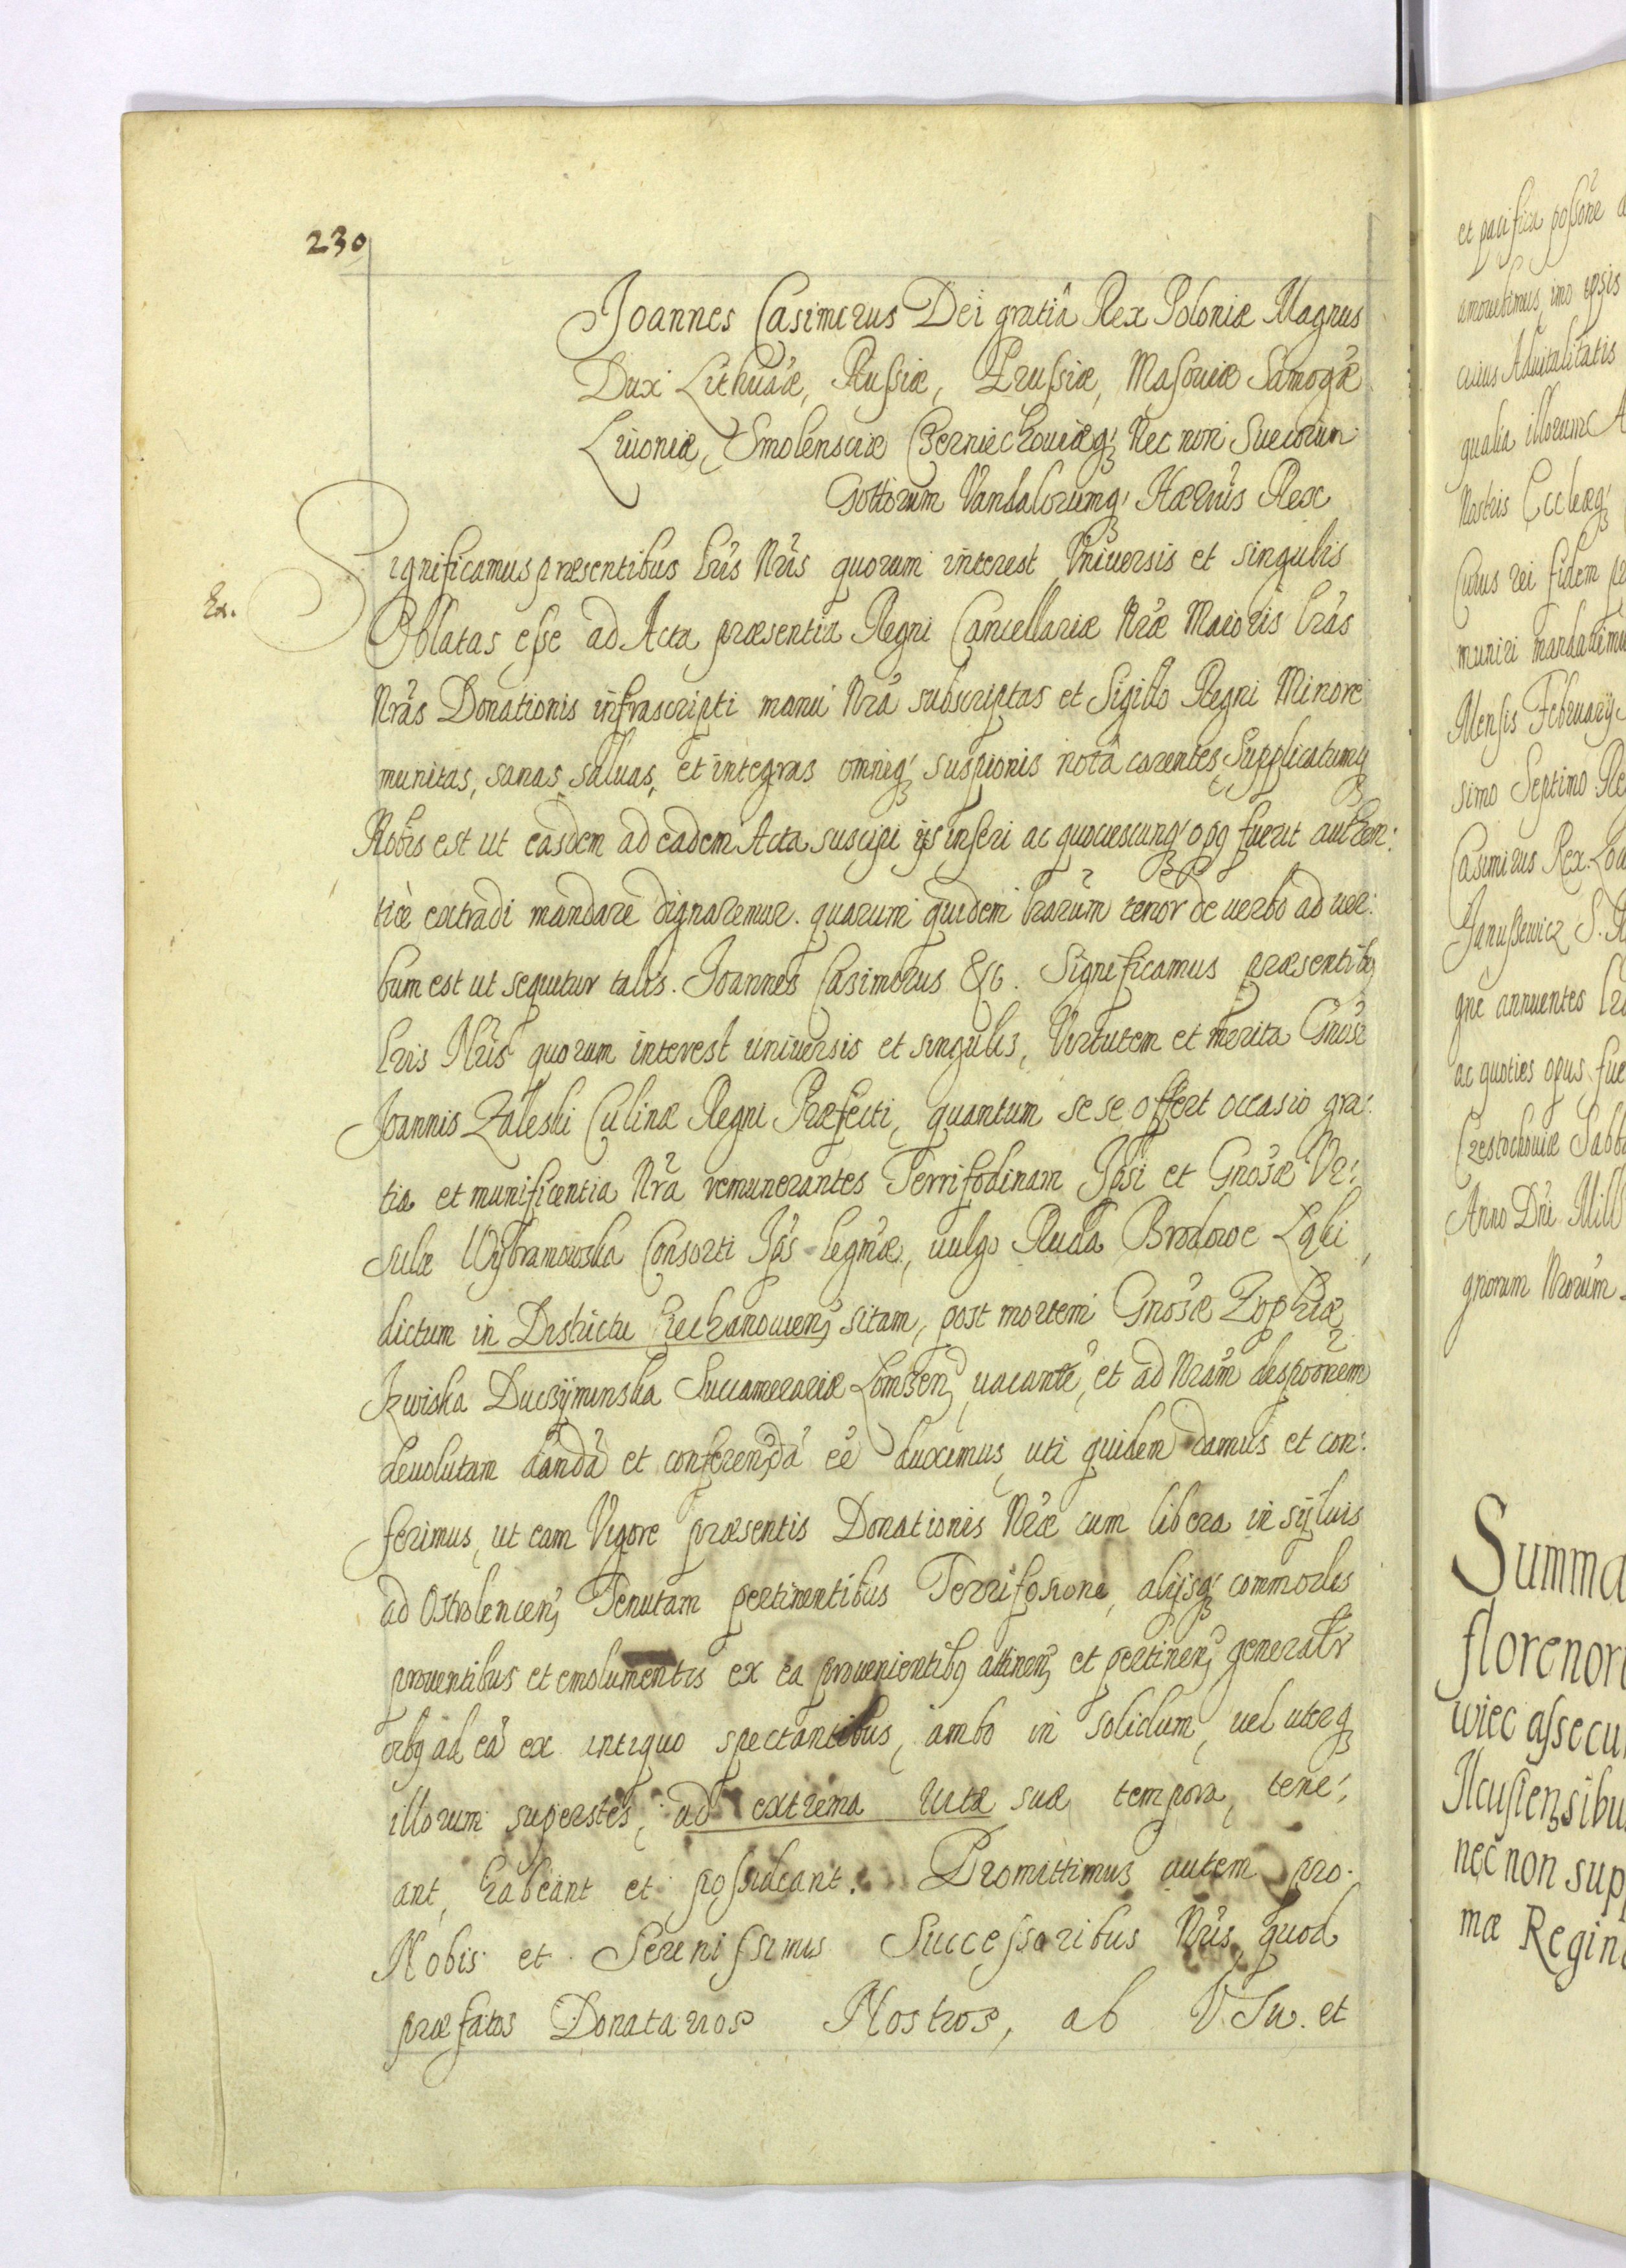 230
Joannes Casimirus Dei gratiâ Rex Poloniæ Magnus
Dux Lithuaæ, Russiæ, Prussiæ, Masouiæ Samogæ
Liuoniæ, Smolensciæ Czerniechouiæq; Nec non Suecorum
Gottorum Vandalorumq; Hæriûs Rex
Significamus præsentibus Lris Nris quorum interest Vniuersis et singulis
Ex.
Oblatas esse ad Acta præsentia Regni Cancellariæ Nræ Maioris lras
Nras Donationis infrascripti manu Nra subscriptas et Sigillo Regni Minore
munitas, sanas saluas, et integras omniq; suspionis nota carentes, Supplicatumq
Nobis est ut easdem ad eadem Acta suscipi ijs inseri ac quociescunq; opq fuerit authen:
ticè extradi mandare dignaremur. quarum quidem lrarum tenor de uerbo ad uer:
bum est ut sequitur talis. Joannes Casimirus &c. Significamus præsentibq
Lris Nris quorum interest uniuersis et singulis, Virtutem et merita Gnosi
Joannis Zaleski Culinæ Regni Præfecti, quantum se se offert occasio gra:
tia et munificentia Nra remunerantes Ferrifodinam Ipsi et Gnosæ Vr:
sulæ Wybramowska Consorti Ips legmæ, uulgo Ruda Brodowe Łąki
dictum in Districtu Ciechanouien; sitam, post mortem Gnosæ Zophiæ
Duczyminska Succamerariæ Lomzen; uacantê, et ad Nram desponem
deuolutam danda et conferenda eê duximus, uti quidem damus et con:
ferimus, ut eam Vigore præsentis Donationis Nræ cum libera in syluis
ad Ostrolencen; Tenutam pertinentibus Ferrifosione, alijsq; commodis
prouentibus et emolumentis ex ea prouenientibq attinen; et pertinen; generalr
oibq ad eâ ex antiquo spectantibus, ambo in solidum, uel uterq
illorum superstes, ad extrema uitæ suæ tempora, tene:
ant, habeant et possideant. Promittimus autem pro
Nobis et Serenissimis Successoribus Nris, quod
præfatos Donatarios Nostros, ab Vsu. et
et pacifica possone
amouebimus, imo ipsis
cuius Aduitalitatis
qualia illorum
Nostris Ecclæq;
Cuius rei fidem
muniri mandauimus
Mensis February
simo Septimo Re
Casimirus Rex.
Janussewicz S.
gnê annuentes
ac quoties opus fue
Czestochouiæ Sabba
Anno Dni Mill
gnorum Nrorum
Summa
florenor
wiec assecu
Ilcusiensibu
nec non sup
mæ Regin